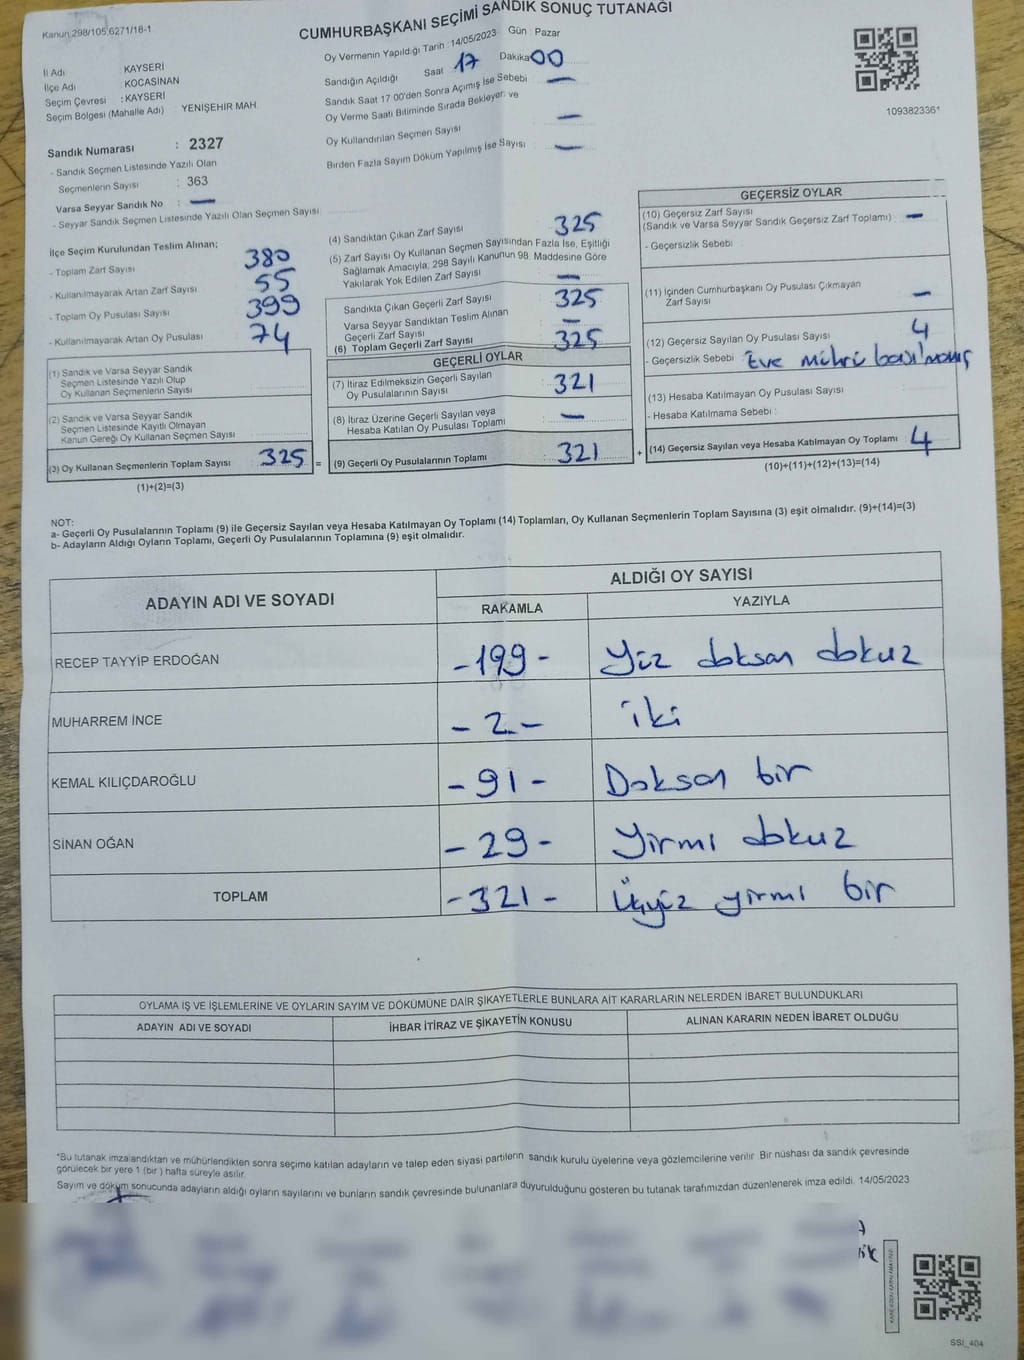 Kanun 298/105,6271/18-1
CUMHURBAŞKANI SEÇİMİ SANDIK SONUÇ TUTANAĞI
Oy Vermenin Yapıldığı Tarih : 14/05/2023 Gün : Pazar
Sandığın Açıldığı Saat 17 Dakika 00
Sandık Saat 17 00'den Sonra Açımış İse Sebebi —
Oy Verme Saati Bitiminde Sırada Bekleyen ve
Oy Kullandırılan Seçmen Sayısı —
Birden Fazla Sayım Döküm Yapılmış İse Sayısı : —
1093823361
İl Adı : KAYSERİ
İlçe Adı : KOCASİNAN
Seçim Çevresi : KAYSERİ
Seçim Bölgesi (Mahalle Adı) YENİŞEHİR MAH.
Sandık Numarası : 2327
- Sandık Seçmen Listesinde Yazılı Olan
Seçmenlerin Sayısı : 363
Varsa Seyyar Sandık No : —
- Seyyar Sandık Seçmen Listesinde Yazılı Olan Seçmen Sayısı
İlçe Seçim Kurulundan Teslim Alınan;
- Toplam Zarf Sayısı 380
- Kullanılmayarak Artan Zarf Sayısı 55
- Toplam Oy Pusulası Sayısı 399
- Kullanılmayarak Artan Oy Pusulası 74
(1) Sandık ve Varsa Seyyar Sandık
Seçmen Listesinde Yazılı Olup
Oy Kullanan Seçmenlerin Sayısı
(2) Sandık ve Varsa Seyyar Sandık
Seçmen Listesinde Kayıtlı Olmayan
Kanun Gereği Oy Kullanan Seçmen Sayısı
(3) Oy Kullanan Seçmenlerin Toplam Sayısı 325 =
(1)+(2)=(3)
(4) Sandıktan Çıkan Zarf Sayısı 325
(5) Zarf Sayısı Oy Kullanan Seçmen Sayısından Fazla İse, Eşitliği
Sağlamak Amacıyla, 298 Sayılı Kanunun 98. Maddesine Göre
Yakılarak Yok Edilen Zarf Sayısı —
Sandıkta Çıkan Geçerli Zarf Sayısı 325
Varsa Seyyar Sandıktan Teslim Alınan
Geçerli Zarf Sayısı —
(6) Toplam Geçerli Zarf Sayısı 325
GEÇERLİ OYLAR
(7) İtiraz Edilmeksizin Geçerli Sayılan
Oy Pusulalarının Sayısı 321
(8) İtiraz Üzerine Geçerli Sayılan veya
Hesaba Katılan Oy Pusulası Toplamı —
(9) Geçerli Oy Pusulalarının Toplamı 321 +
GEÇERSİZ OYLAR
(10) Geçersiz Zarf Sayısı
(Sandık ve Varsa Seyyar Sandık Geçersiz Zarf Toplamı) : —
- Geçersizlik Sebebi :
(11) İçinden Cumhurbaşkanı Oy Pusulası Çıkmayan
Zarf Sayısı —
(12) Geçersiz Sayılan Oy Pusulası Sayısı 4
- Geçersizlik Sebebi : Eve mührü basılmamış
(13) Hesaba Katılmayan Oy Pusulası Sayısı
- Hesaba Katılmama Sebebi :
(14) Geçersiz Sayılan veya Hesaba Katılmayan Oy Toplamı 4
(10)+(11)+(12)+(13)=(14)
NOT:
a- Geçerli Oy Pusulalarının Toplamı (9) ile Geçersiz Sayılan veya Hesaba Katılmayan Oy Toplamı (14) Toplamları, Oy Kullanan Seçmenlerin Toplam Sayısına (3) eşit olmalıdır. (9)+(14)=(3)
b- Adayların Aldığı Oyların Toplamı, Geçerli Oy Pusulalarının Toplamına (9) eşit olmalıdır.
ADAYIN ADI VE SOYADI ALDIĞI OY SAYISI
RAKAMLA YAZIYLA
RECEP TAYYİP ERDOĞAN -199- Yüz doksan dokuz
MUHARREM İNCE -2- iki
KEMAL KILIÇDAROĞLU -91- Doksan bir
SİNAN OĞAN -29- Yirmi dokuz
TOPLAM -321- Üçyüz yirmi bir
OYLAMA İŞ VE İŞLEMLERİNE VE OYLARIN SAYIM VE DÖKÜMÜNE DAİR ŞİKAYETLERLE BUNLARA AİT KARARLARIN NELERDEN İBARET BULUNDUKLARI
ADAYIN ADI VE SOYADI İHBAR İTİRAZ VE ŞİKAYETİN KONUSU ALINAN KARARIN NEDEN İBARET OLDUĞU
*Bu tutanak imzalandıktan ve mühürlendikten sonra seçime katılan adayların ve talep eden siyasi partilerin sandık kurulu üyelerine veya gözlemcilerine verilir. Bir nüshası da sandık çevresinde
görülecek bir yere 1 (bir ) hafta süreyle asılır.
Sayım ve döküm sonucunda adayların aldığı oyların sayılarını ve bunların sandık çevresinde bulunanlara duyurulduğunu gösteren bu tutanak tarafımızdan düzenlenerek imza edildi. 14/05/2023
SSI_404